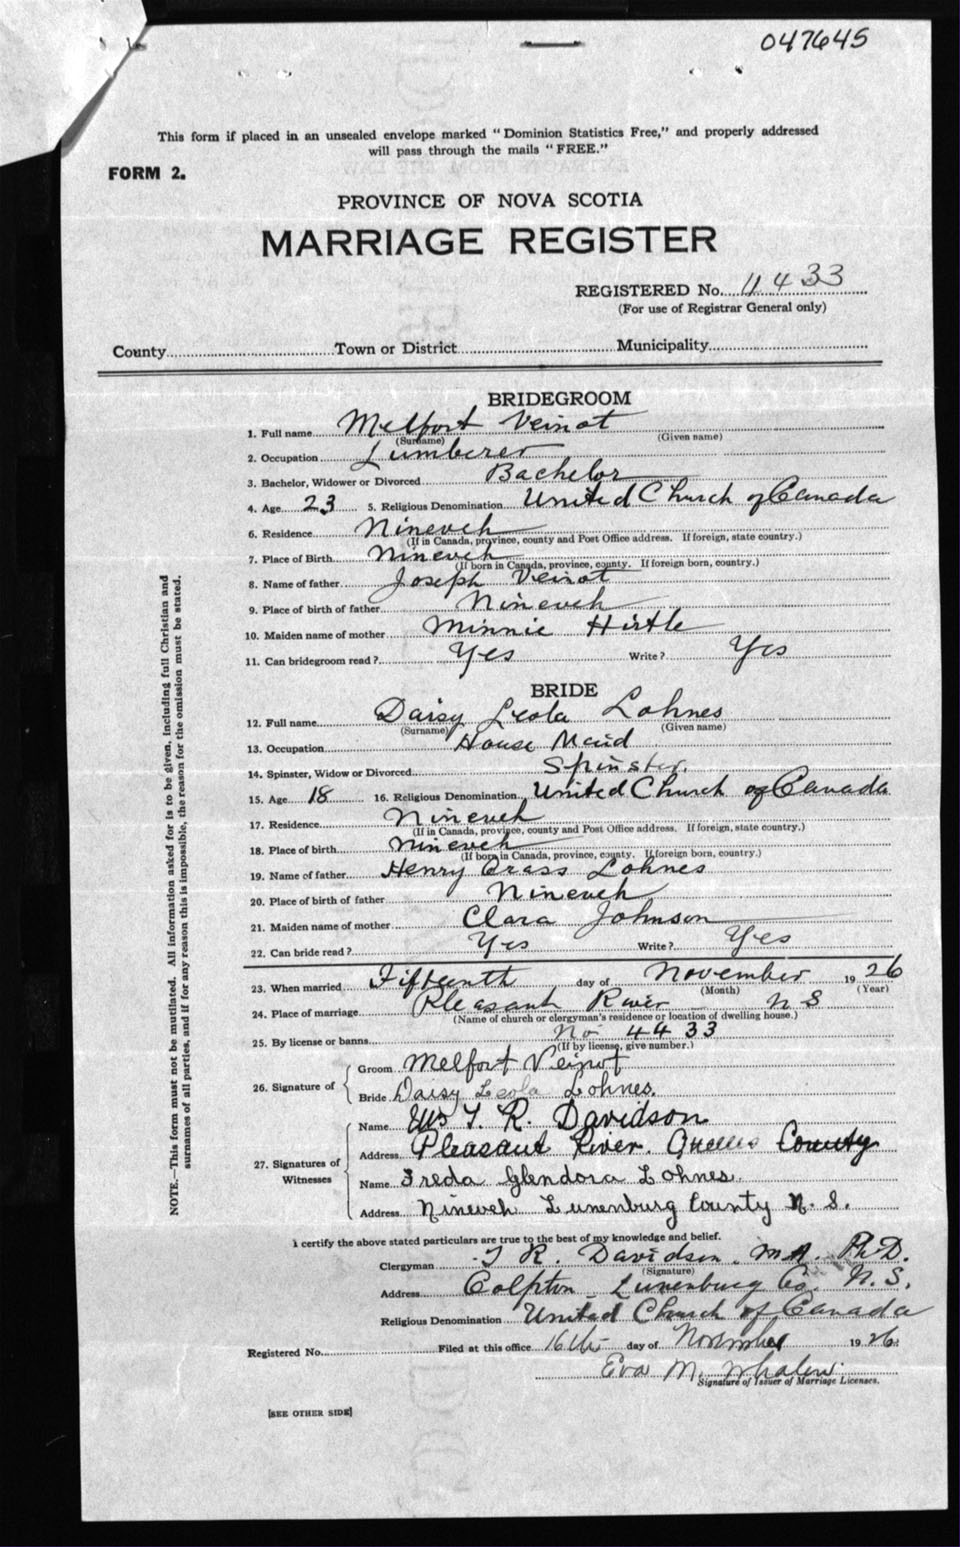 047645
This form if placed in an unsealed envelope marked "Dominion Statistics Free," and properly addressed
will pass through the mails "FREE."
FORM 2.
PROVINCE OF NOVA SCOTIA
MARRIAGE REGISTER
REGISTERED No. 4433
(For use of Registrar General only)
County Town or District Municipality
BRIDEGROOM
1. Full name Melfort Veinot
(Surname) (Given name)
2. Occupation Lumberer
3. Bachelor, Widower or Divorced Bachelor
4. Age 23 5. Religious Denomination United Church of Canada
6. Residence Nineveh
(If in Canada, province, county and Post Office address. If foreign, state country.)
7. Place of Birth Nineveh
(If born in Canada, province, county. If foreign born, country.)
8. Name of father Joseph Veinot
9. Place of birth of father Nineveh
10. Maiden name of mother Minnie Hirtle
11. Can bridegroom read? Yes Write? Yes
BRIDE
12. Full name Daisy Leola Lohnes
(Surname) (Given name)
13. Occupation House Maid
14. Spinster, Widow or Divorced Spinster.
15. Age 18 16. Religious Denomination United Church of Canada
17. Residence Nineveh
(If in Canada, province, county and Post Office address. If foreign, state country.)
18. Place of birth Nineveh
(If born in Canada, province, county. If foreign born, country.)
19. Name of father Henry Lohnes
20. Place of birth of father Nineveh
21. Maiden name of mother Clara Johnson
22. Can bride read? Yes Write? Yes
23. When married Fifteenth day of November 1926
(Month) (Year)
24. Place of marriage Pleasant River N S
(Name of church or clergyman's residence or location of dwelling house.)
25. By license or banns No 4433
(If by license, give number.)
26. Signature of
Groom Melfort Veinot
Bride Daisy Leola Lohnes.
27. Signatures of Witnesses
Name Mrs T. R. Davidson
Address Pleasant River. Queens County
Name Freda Glendora Lohnes.
Address Nineveh Lunenburg County N. S.
I certify the above stated particulars are true to the best of my knowledge and belief.
Clergyman T R. Davidson. M.A. Ph.D.
(Signature)
Address Colpton Lunenburg Co. N.S.
Religious Denomination United Church of Canada
Registered No. Filed at this office 16th day of November 1926.
Eva M. Whalen
Signature of Issuer of Marriage Licenses.
[SEE OTHER SIDE]
NOTE.—This form must not be mutilated. All information asked for is to be given, including full Christian and
surnames of all parties, and if for any reason this is impossible, the reason for the omission must be stated.